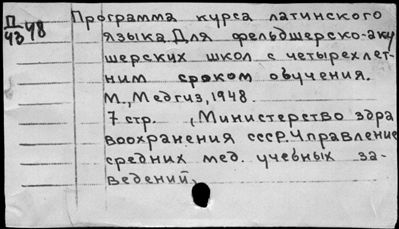 П 48
43
Программа курса латинского
языка Для фельдшерско-аку
шерских школ с четырехлет-
ним сроком обучения.
М., Медгиз, 1948.
7 стр. (Министерство здра
воохранения СССР. Управление
средних мед. учебных за-
ведений)